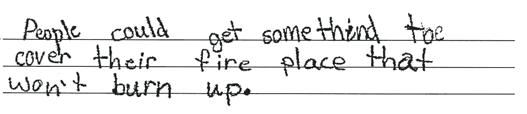 People could get somethind toe
cover their fire place that
won't burn up.